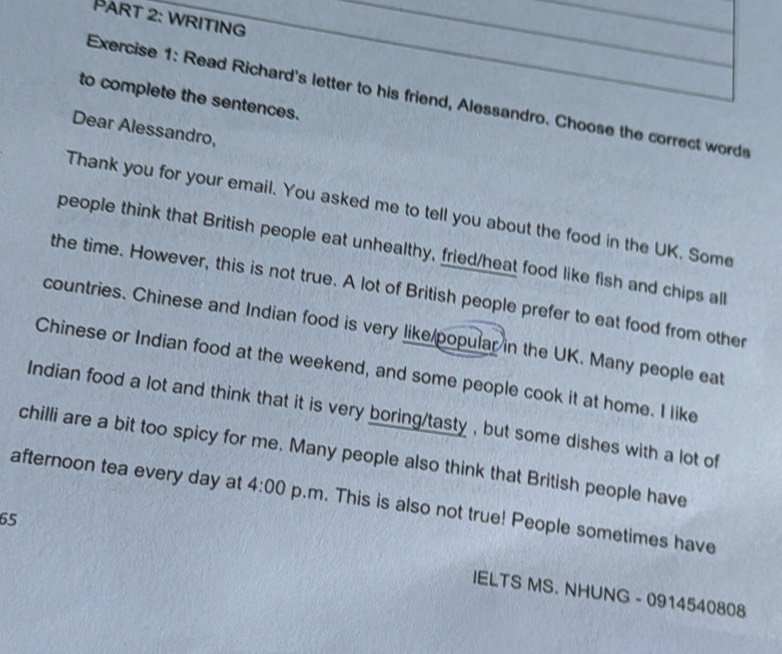 PART 2: WRITING
Exercise 1: Read Richard's letter to his friend, Alessandro. Choose the correct words
to complete the sentences.
Dear Alessandro,
Thank you for your email. You asked me to tell you about the food in the UK. Some
people think that British people eat unhealthy, fried/heat food like fish and chips all
the time. However, this is not true. A lot of British people prefer to eat food from other
countries. Chinese and Indian food is very like/popular in the UK. Many people eat
Chinese or Indian food at the weekend, and some people cook it at home. I like
Indian food a lot and think that it is very boring/tasty , but some dishes with a lot of
chilli are a bit too spicy for me. Many people also think that British people have
afternoon tea every day at 4:00 p.m. This is also not true! People sometimes have
65
IELTS MS. NHUNG - 0914540808